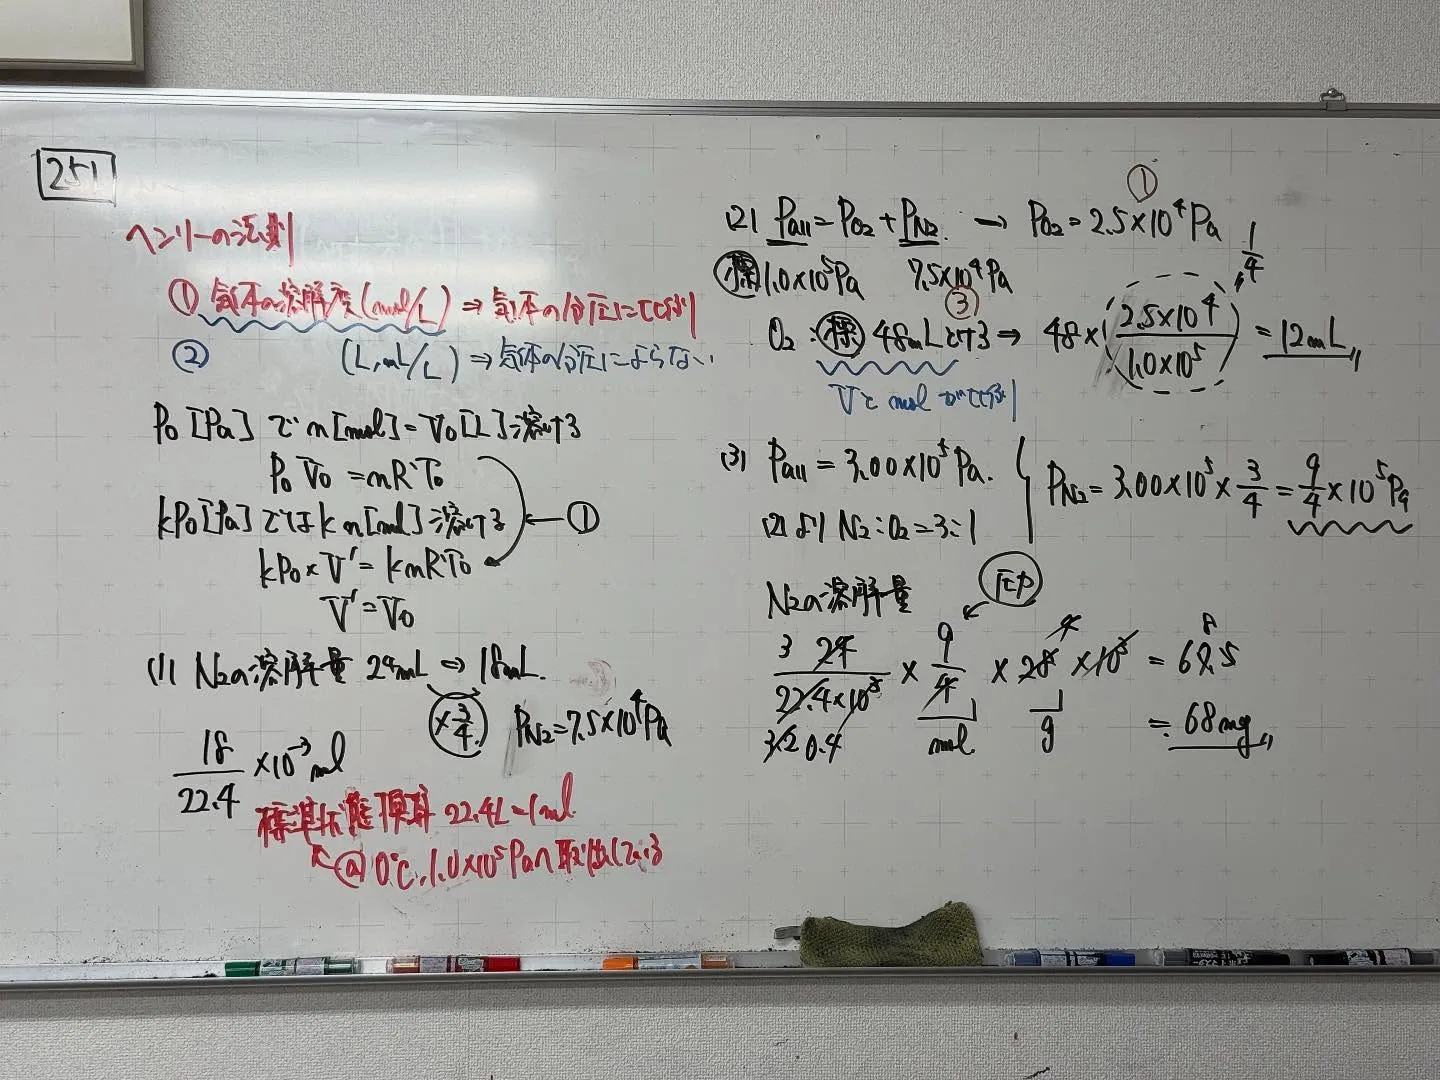 251
ヘンリーの法則
① 気体の溶解度(mol/L) ⇒ 気体の分圧に比例
② (L, mL/L) ⇒ 気体の分圧によらない
P0[Pa] で n[mol] = V0[L] 溶ける
P0V0 = nRT0
kP0[Pa] では kn[mol] 溶ける ← ①
kP0 × V' = knRT0
V' = V0
(1) N2の溶解量 24mL ⇒ 18mL.
×3/4 PN2 = 7.5×10^4 Pa
18/22.4 ×10^-3 mol
標準状態換算 22.4L = 1mol
@ 0℃, 1.0×10^5 Pa
(2) Pall = PO2 + PN2. → PO2 = 2.5×10^4 Pa ①
標 1.0×10^5 Pa 7.5×10^4 Pa 1/4
③
O2: 標 48mL とける ⇒ 48×(2.5×10^4/1.0×10^5) = 12mL
Vと mol が比例
(3) Pall = 3.00×10^5 Pa.
(2)より N2:O2 = 3:1
PN2 = 3.00×10^5 × 3/4 = 9/4 ×10^5 Pa
N2の溶解量 圧力
3 24/22.4×10^3 × 9/4 × 28 × 10^3 = 67.5
8
4
3.2 0.4 mol g = 68mg